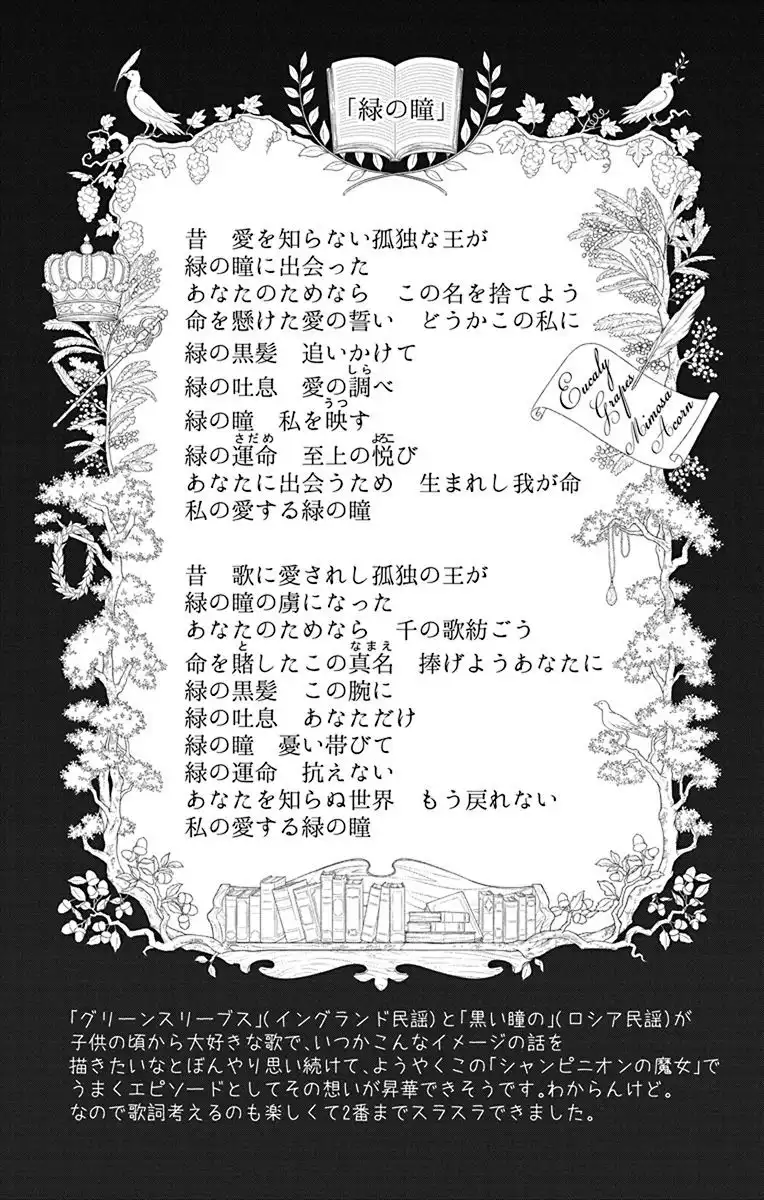 「緑の瞳」
昔　愛を知らない孤独な王が
緑の瞳に出会った
あなたのためなら　この名を捨てよう
命を懸けた愛の誓い　どうかこの私に
緑の黒髪　追いかけて
緑の吐息　愛の調べ
しら
緑の瞳　私を映す
うつ
緑の運命　至上の悦び
さだめ　よろこ
あなたに出会うため　生まれし我が命
私の愛する緑の瞳
Eucaly
Grapes
Mimosa
Acorn
昔　歌に愛されし孤独の王が
緑の瞳の虜になった
あなたのためなら　千の歌紡ごう
命を賭したこの真名　捧げようあなたに
と　なまえ
緑の黒髪　この腕に
緑の吐息　あなただけ
緑の瞳　憂い帯びて
緑の運命　抗えない
あなたを知らぬ世界　もう戻れない
私の愛する緑の瞳
「グリーンスリーブス」(イングランド民謡)と「黒い瞳の」(ロシア民謡)が
子供の頃から大好きな歌で、いつかこんなイメージの話を
描きたいなとぼんやり思い続けて、ようやくこの「シャンピニオンの魔女」で
うまくエピソードとしてその想いが昇華できそうです。わからんけど。
なので歌詞考えるのも楽しくて2番までスラスラできました。